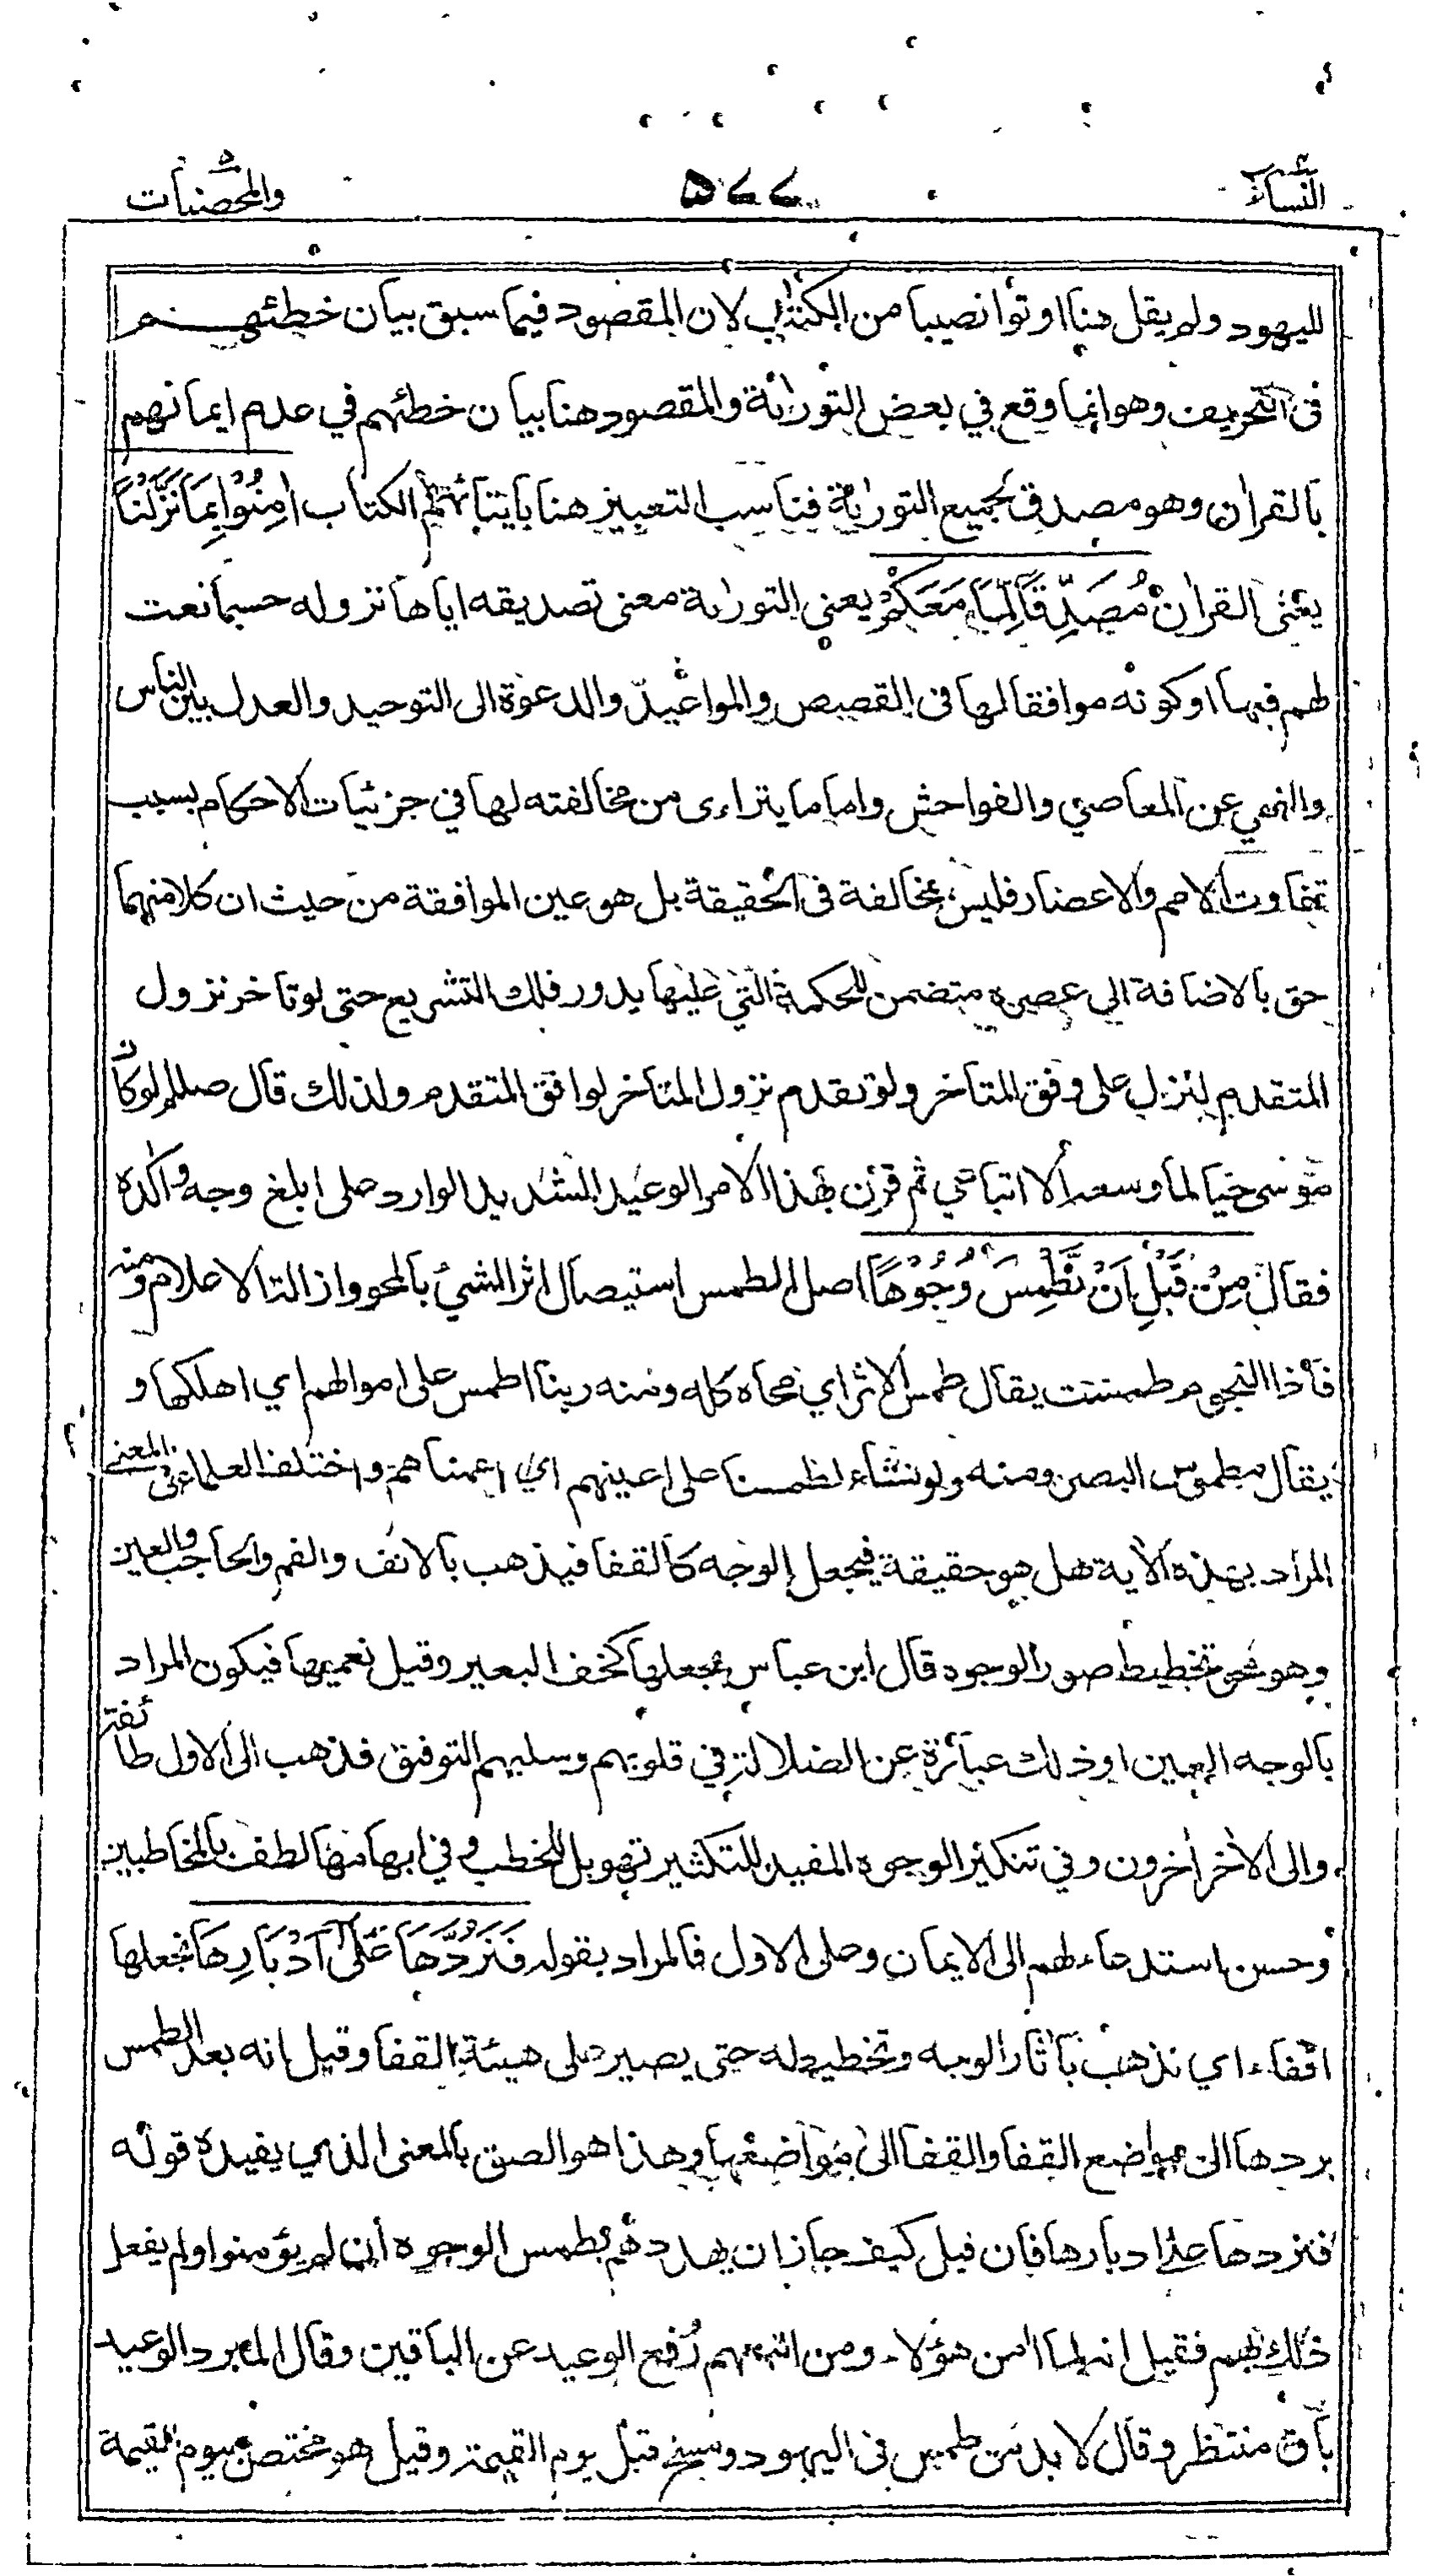 النساء ۵۷۷ والمحصنات
لليهود ولم يقل هنا اوتوا نصيبا من الكتاب لان المقصود فيما سبق بيان خطئهم
فى التحريف وهو انما وقع في بعض التورٰىة والمقصود هنا بيان خطئهم في عدم ايمانهم
بالقراٰن وهو مصدق لجميع التورٰىة فناسب التعبير هنا بايتائهم الكتاب اٰمِنُوْا بِمَا نَزَّلْنَا
يعنى القراٰن مُصَدِّقًا لِّمَا مَعَكُمْ يعني التورٰىة معنى تصديقه اياها نزوله حسبما نعت
لهم فيها او كونه موافقا لها فى القصص والمواعيد والدعوة الى التوحيد والعدل بين الناس
والنهي عن المعاصي والفواحش واما ما يتراءى من مخالفته لها في جزئيات الاحكام بسبب
تفاوت الامم والاعصار فليس بمخالفة فى الحقيقة بل هو عين الموافقة من حيث ان كلا منهما
حق بالاضافة الي عصره متضمن للحكمة التي عليها يدور فلك التشريع حتى لو تاخر نزول
المتقدم لنزل على وفق المتاخر ولو تقدم نزول المتاخر لوافق المتقدم ولذلك قال صللم لو كان
موسى حيا لما وسعه الا اتباعي ثم قرن بهذا الامر الوعيد الشديد الوارد على ابلغ وجه واكده
فقال مِنْ قَبْلِ اَنْ نَّطْمِسَ وُجُوْهًا اصل الطمس استيصال اثر الشيئ بالمحو وازالة الاعلام ومنه
فاذا النجوم طمست يقال طمس الاثر اي محاه كله ومنه ربنا اطمس على اموالهم اي اهلكها و
يقال مطموس البصر ومنه ولو نشاء لطمسنا على اعينهم اي اعميناهم واختلف العلماء فى المعنى
المراد بهذه الاٰية هل هو حقيقة فيجعل الوجه كالقفا فيذهب بالانف والفم والحاجب والعين
وهو محو تخطيط صور الوجوه قال ابن عباس يجعلها كخف البعير وقيل نعميها فيكون المراد
بالوجه العين او ذلك عبارة عن الضلالة في قلوبهم وسلبهم التوفيق فذهب الى الاول طائفة
والى الاٰخر اٰخرون وفي تنكير الوجوه المفيد للتكثير تهويل للخطب وفي ابهامها لطف بالمخاطبين
وحسن استدعاء لهم الى الايمان وعلى الاول فالمراد بقوله فَنَرُدَّهَا عَلٰٓى اَدْبَارِهَا نجعلها
اقفاء اي نذهب باٰثار الوجه وتخطيطه حتى يصير على هيئة القفا وقيل انه بعد الطمس
يردها الى مواضع القفا والقفا الى مواضعها وهذا هو الصق بالمعنى الذي يفيده قوله
فنردها على ادبارها فان قيل كيف جاز ان يهددهم بطمس الوجوه ان لم يؤمنوا ولم يفعل
ذلك بهم فقيل انه لما اٰمن هؤلاء ومن اتبعهم رفع الوعيد عن الباقين وقال المبرد الوعيد
باق منتظر وقال لا بد من طمس فى اليهود ومسخ قبل يوم القيٰمة وقيل هو مختص بيوم القيٰمة